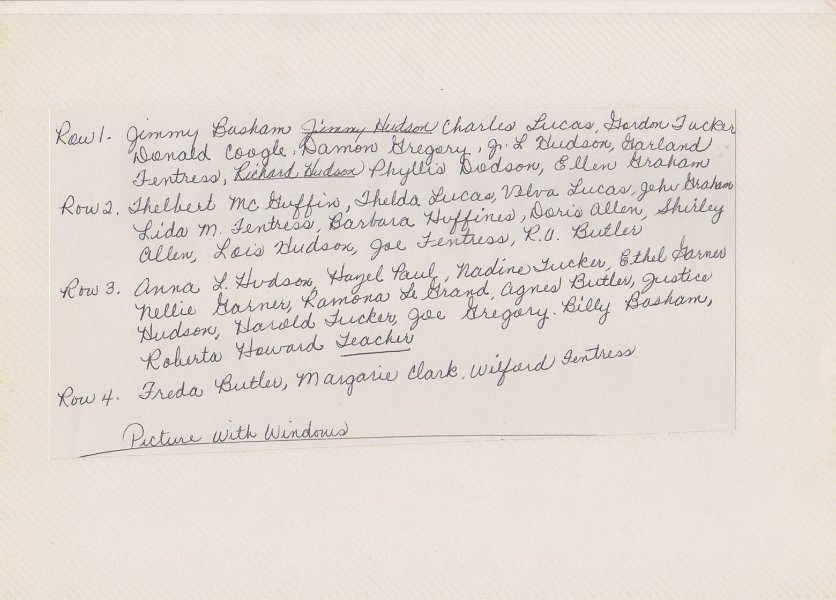 Row 1. Jimmy Basham Jimmy Hudson Charles Lucas, Gordon Tucker
Donald Coogle, Damon Gregory, Jr. L Hudson, Garland
Fentress, Richard Hudson Phyllis Dodson, Ellen Graham
Row 2. Thelbert McGuffin, Thelda Lucas, Velva Lucas, John Graham
Lida M. Fentress, Barbara Huffines, Doris Allen, Shirley
Allen, Lois Hudson, Joe Fentress, R.A. Butler
Row 3. Anna L. Hudson, Hazel Paul, Nadine Tucker, Ethel Garner
Nellie Garner, Ramona Le Grand, Agnes Butler, Justice
Hudson, Harold Tucker, Joe Gregory. Billy Basham,
Roberta Howard Teacher
Row 4. Freda Butler, Margarie Clark, Wilford Fentress
Picture with Windows